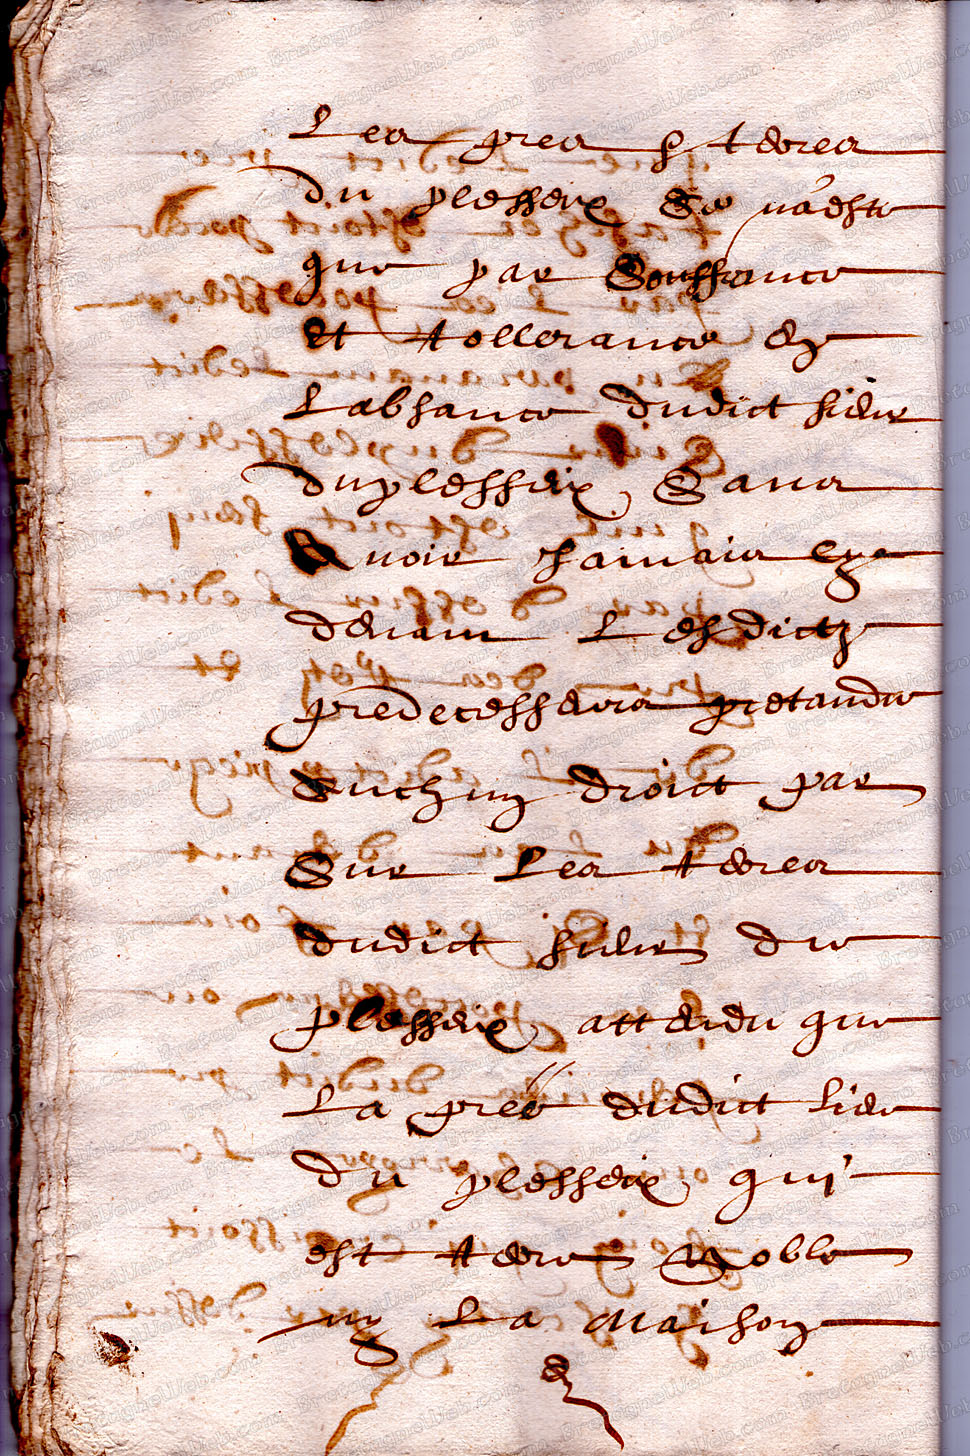 Les pres & terres
du plesseix Se n'a esté
que par Souffrance
et tollerance en
Labsance dudict sieur
du plesseix Sans
Avoir Jamais cy
devant Lesdictz
predecesseurs pretandu
aulchung droict par
Sur Les terres
dudict sieur du
plesseix attendu que
La pree dudict sieur
du plesseix qui
est terre Noble
ny La maison